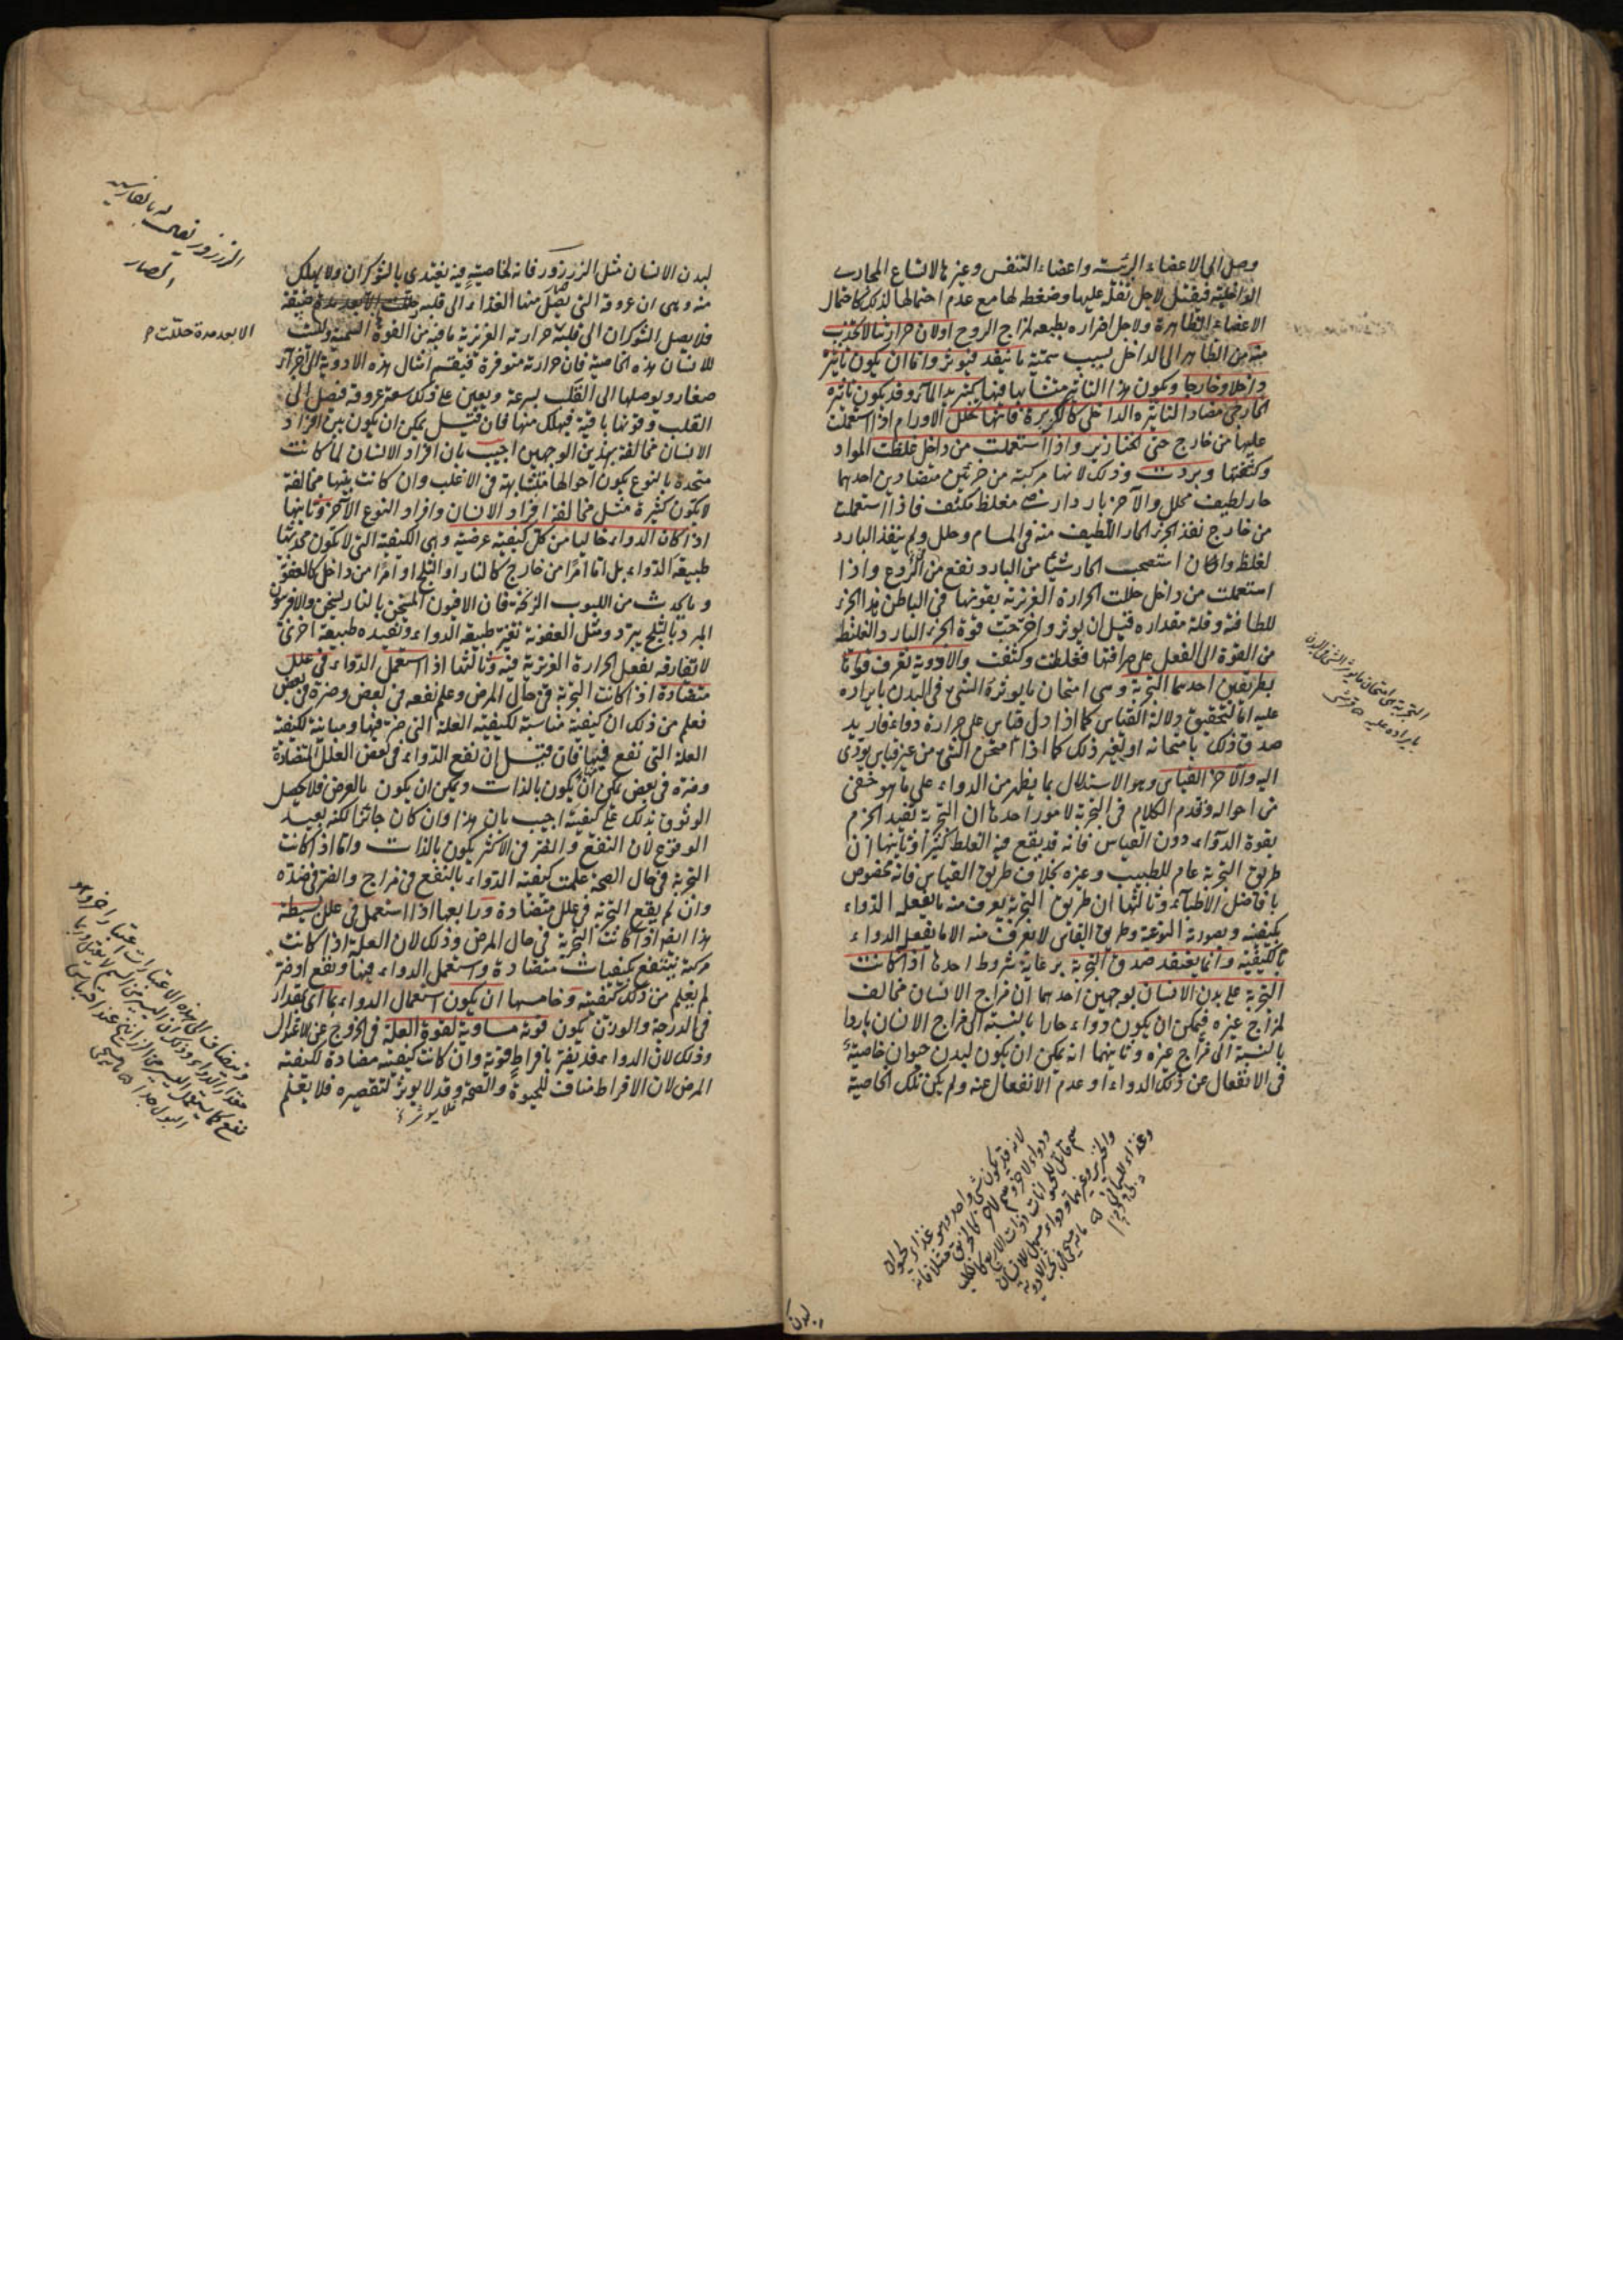 وصل الى الاعضاء الرئيسة واعضاء التنفس وغيرها لاتساع المجارى
الداخلية فيقتل لاجل ثقله عليها وضغطه لها مع عدم احتمالها لذلك كاحتمال
الاعضاء الظاهرة ولاجل اضراره بطبعه لمزاج الروح اولان حرارتنا لا تجذب
منه من الظاهر الى الداخل بسبب سميته ما ينفذ فيؤثر واما ان يكون تاثيره
داخلا وخارجا ويكون هذا التاثير متشابها فيهما كتبريد الماء وقد يكون تاثيره
الخارجى مضادا لتاثيره الداخلى كالكزبرة فانها تحلل الاورام اذا استعملت
عليها من خارج حتى الخنازير واذا استعملت من داخل غلظت المواد
وكثفتها وبردت وذلك لانها مركبة من جزئين متضادين احدهما
حار لطيف محلل والآخر بارد ارضى مغلظ مكثف فاذا استعملت
من خارج نفذ الجزء الحار اللطيف منه فى المسام وحلل ولم ينفذ البارد
لغلظه وان كان استصحب الحار شيئا من البارد نفع من الردع واذا
استعملت من داخل حللت الحرارة الغريزية بقوتها فى الباطن هذا الجزء
للطافته وقلة مقداره قبل ان يوثر واخرجت قوة الجزء البارد الغليظ
من القوة الى الفعل على صرافتها فغلظت وكثفت والادوية تعرف قواتها
بطريقين احدهما التجربة وهى امتحان ما يوثره الشئ فى البدن بايراده
عليه اما لتحقيق دلالة القياس كما اذا دل قياس على حرارة دواء فاريد
صدق ذلك بامتحانه او لغير ذلك كما اذا امتحن الشئ من غير قياس يؤدى
اليه والآخر القياس وهو الاستدلال بما يظهر من الدواء على ما هو خفى
من احواله وقدم الكلام فى التجربة لامور احدها ان التجربة تفيد الجزم
بقوة الدواء دون القياس فانه قد يقع فيه الغلط كثيرا وثانيها ان
طريق التجربة عام للطبيب وغيره بخلاف طريق القياس فانه مخصوص
بافاضل الاطباء وثالثها ان طريق التجربة يعرف منه ما يفعله الدواء
بكيفيته وبصورته النوعية وطريق القياس لا يعرف منه الا ما يفعل الدواء
بالكيفية وانما يعتقد صدق التجربة برعاية شروط احدها اذا كانت
التجربة على بدن الانسان بوجهين احدهما ان مزاج الانسان مخالف
لمزاج غيره فيمكن ان يكون دواء حارا بالنسبة الى مزاج الانسان باردا
بالنسبة الى مزاج غيره وثانيهما انه يمكن ان يكون لبدن حيوان خاصية
فى الانفعال عن ذلك الدواء او عدم الانفعال عنه ولم يكن تلك الخاصية
التجربة هى امتحان ما يوثر الشئ فى البدن
بايراده عليه قرشى
لانه قد يكون شئ واحد وهو غذاء لحيوان
ودواء لآخر وسم لآخر كالخربق مثلا فانه
سم قاتل للحيوانات ذوات الاربع كالكلب
والخنزير وغيرهما ودواء مسهل للانسان
وغذاء للسمانى
لبدن
لبدن الانسان مثل الزرزور فانه لخاصية فيه يغتذى بالشوكران ولا يهلك
منه وهى ان عروقه التى يصل منها الغذاء الى قلبه ضيقة
فلا يصل الشوكران الى قلبه حرارته الغريزية ما فيه من القوة السمية وليست
للانسان هذه الخاصية فان حرارته متوفرة فيقسم امثال هذه الادوية الى اجزاء
صغار ويوصلها الى القلب بسرعة ويعين على ذلك سعة عروقه فتصل الى
القلب وقوتها باقية فيهلك منها فان قيل يمكن ان يكون بين افراد
الانسان مخالفة بهذين الوجهين اجيب بان افراد الانسان لما كانت
متحدة بالنوع يكون احوالها متشابهة فى الاغلب وان كانت بينها مخالفة
لا يكون كثيرة مثل مخالفة افراد الانسان وافراد النوع الآخر وثانيها
اذا كان الدواء خاليا من كل كيفية عرضية وهى الكيفية التى لا يكون محدثها
طبيعة الدواء بل اما امرا من خارج كالنار او الثلج او امرا من داخل كالعفونة
وما يحدث من اللبوب الزنخة فان الافيون المسخن بالنار يسخن والافربيون
المبرد بالثلج يبرد ومثل العفونة تغير طبيعة الدواء وتفيده طبيعة اخرى
لا تفارقه بفعل الحرارة الغريزية فيه وثالثها اذا استعمل الدواء فى علل
متضادة اذا كانت التجربة فى حال المرض وعلم نفعه فى بعض وضره فى بعض
فعلم من ذلك ان كيفيته مناسبة لكيفية العلة التى ضر فيها ومباينة لكيفية
العلة التى نفع فيها فان قيل ان نفع الدواء فى بعض العلل المتضادة
وضره فى بعض يمكن ان يكون بالذات ويمكن ان يكون بالعرض فلا يحصل
الوثوق بذلك على كيفيته اجيب بان هذا وان كان جائزا لكنه بعيد
الوقوع لان النفع والضر فى الاكثر يكون بالذات واما اذا كانت
التجربة فى حال الصحة علمت كيفية الدواء بالنفع فى مزاج والضر فى ضده
وان لم يقع التجربة فى علل متضادة ورابعها اذا استعمل فى علل بسيطة
هذا ايضا اذا كانت التجربة فى حال المرض وذلك لان العلة اذا كانت
مركبة ينتفع بكيفيات متضادة واستعمل الدواء فيها ونفع او ضر
لم يعلم من ذلك كيفيته وخامسها ان يكون استعمال الدواء بما اى بمقدار
فى الدرجة والوزن يكون قوته مساوية لقوة العلة فى الخروج عن الاعتدال
وذلك لان الدواء قد يضر بافراط قوته وان كانت كيفيته مضادة لكيفية
المرض لان الافراط مناف للحيوة والصحة وقد لا يوثر لتقصيره فلا يعلم
فلا يوثر
الزرزور يقال له بالفارسية
الا بعد مدة حللت
ويضاف الى هذه الاعتبارات اعتبار آخر وهو
مقدار الدواء وذلك ان اليسير من السم لا يقتل وربما
نفع كما يستعمل اليسير من الذراريح عند احتباس
البول